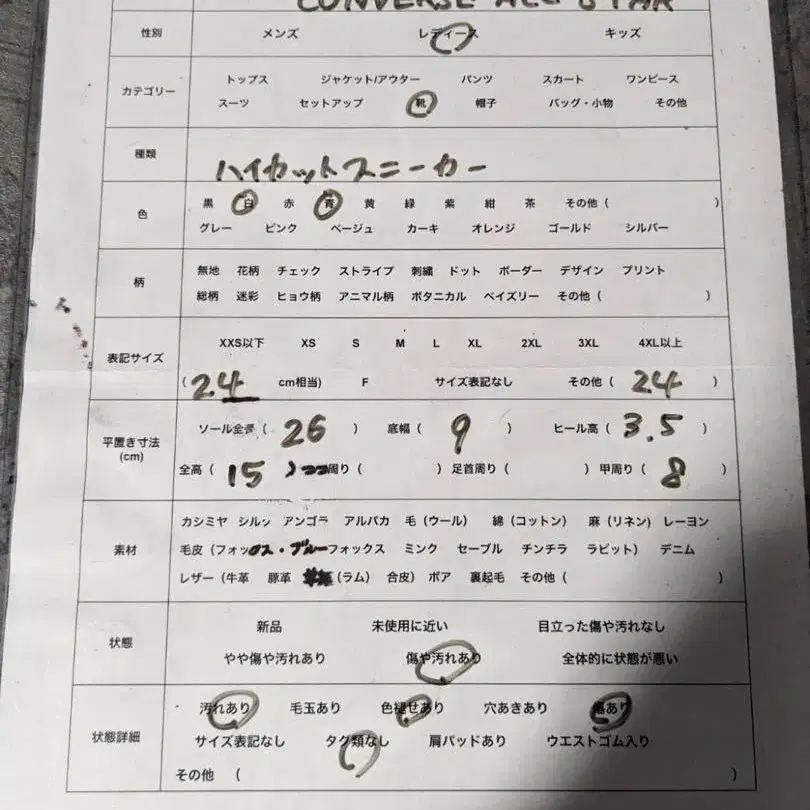 CONVERSE ALL STAR
性別 メンズ レディース キッズ
カテゴリー トップス ジャケット/アウター パンツ スカート ワンピース
スーツ セットアップ 靴 帽子 バッグ・小物 その他
種類 ハイカットスニーカー
色 黒 白 赤 青 黄 緑 紫 紺 茶 その他 ( )
グレー ピンク ベージュ カーキ オレンジ ゴールド シルバー
柄 無地 花柄 チェック ストライプ 刺繍 ドット ボーダー デザイン プリント
総柄 迷彩 ヒョウ柄 アニマル柄 ボタニカル ペイズリー その他 ( )
表記サイズ XXS以下 XS S M L XL 2XL 3XL 4XL以上
( 24 cm相当) F サイズ表記なし その他 ( 24 )
平置き寸法 (cm) ソール全長 ( 26 ) 底幅 ( 9 ) ヒール高 ( 3.5 )
全高 ( 15 ) 周り ( ) 足首周り ( ) 甲周り ( 8 )
素材 カシミヤ シルク アンゴラ アルパカ 毛 (ウール) 綿 (コットン) 麻 (リネン) レーヨン
毛皮 (フォックス・ブルーフォックス ミンク セーブル チンチラ ラビット) デニム
レザー (牛革 豚革 (ラム) 合皮) ボア 裏起毛 その他 ( )
状態 新品 未使用に近い 目立った傷や汚れなし
やや傷や汚れあり 傷や汚れあり 全体的に状態が悪い
状態詳細 汚れあり 毛玉あり 色褪せあり 穴あきあり 傷あり
サイズ表記なし タグ類なし 肩パッドあり ウエストゴム入り
その他 ( )